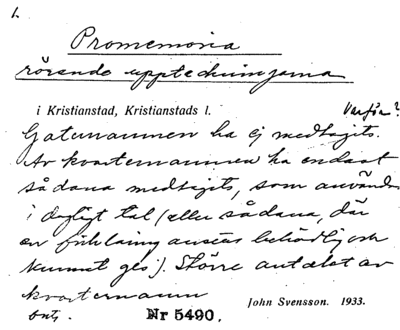 1.
Promemoria
rörande uppteckningarna
i Kristianstad, Kristianstads l.
Varför?
Gatunamnen ha ej medtagits.
Av kvarternamnen ha endast
sådana medtagits, som användas
i dagligt tal (eller sådana, där
en förklaring ansetts behövlig och
kunnat ges). Större antalet av
kvarternamn
John Svensson. 1933.
Nr 5490.